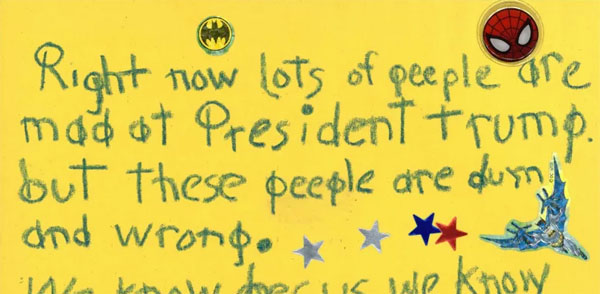 Right now lots of peeple are
mad at President trump.
but these peeple are dum
and wrong.
We know becus we know